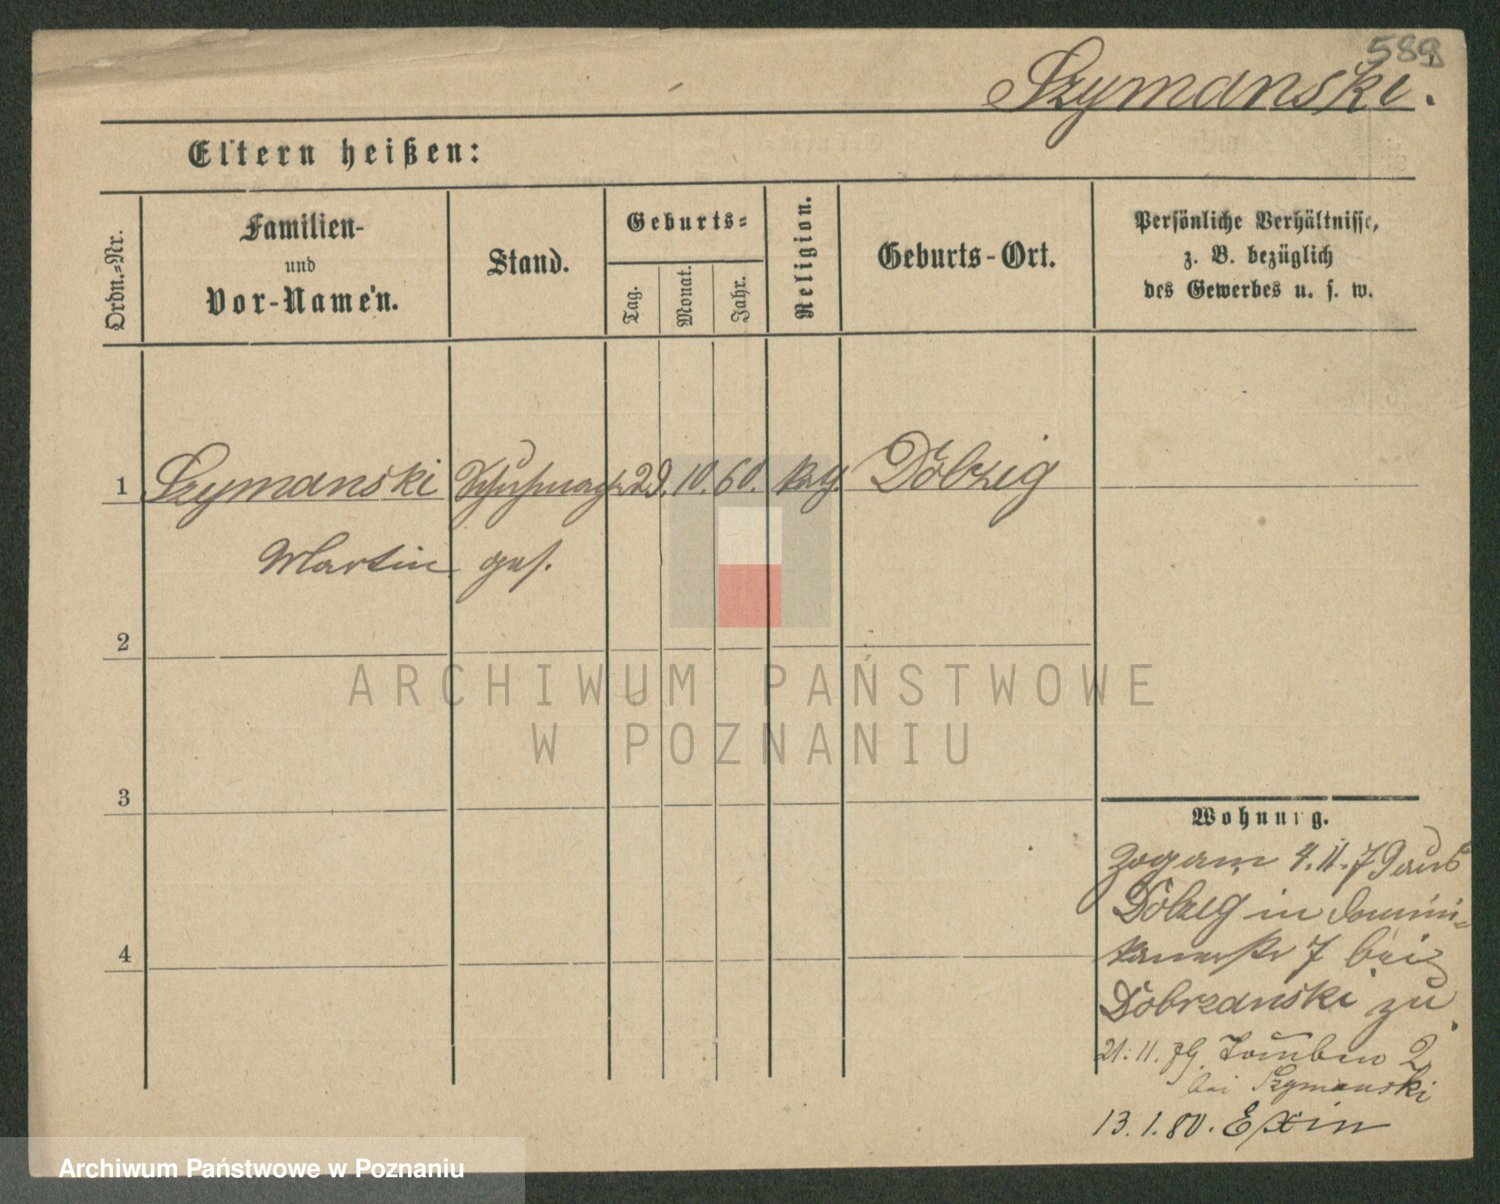 588
Szymanski.
Eltern heißen:
Ordn.=Nr.
Familien-
und
Vor-Namen.
Stand.
Geburts=
Tag.
Monat.
Jahr.
Religion.
Geburts-Ort.
Persönliche Verhältnisse,
z. B. bezüglich
des Gewerbes u. s. w.
1 Szymanski 29. 10. 60. kath. Dolzig
Martin
2
3
4
ARCHIWUM PAŃSTWOWE
W POZNANIU
Wohnung.
Zog am 4.11.79 aus
Dolzig in Domini-
kanerstr 7 bei
Dobrzanski zu
21.11. Tauben 2
bei Szymanski
13.1.80. Exin
Archiwum Państwowe w Poznaniu